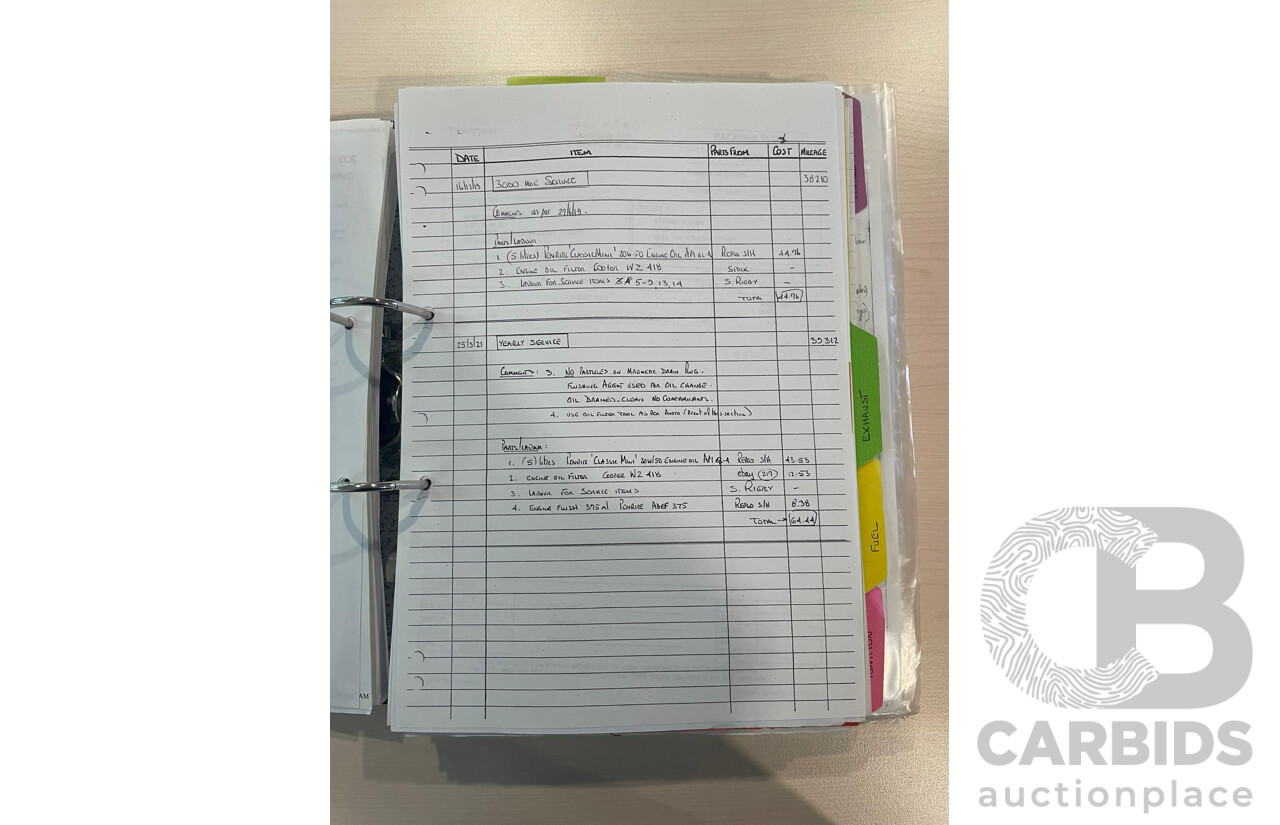 $
DATE ITEM PARTS FROM COST MILEAGE
16/12/19 3000 MILE SERVICE 38210
COMMENTS as per
PARTS/LABOUR
1. (5 litres) PENRITE 'CLASSIC MINI' 20W-50 ENGINE OIL API REPCO S/H 44.76
2. ENGINE OIL FILTER COOPER WZ 418 STOCK -
3. LABOUR FOR SERVICE ITEMS 5-9, 13, 14 S. RIGBY -
TOTAL 44.76
25/3/21 YEARLY SERVICE 39312
COMMENTS: 3. NO PARTICLES ON MAGNETIC DRAIN PLUG.
FLUSHING AGENT USED FOR OIL CHANGE.
OIL DRAINED - CLEAN NO CONTAMINANTS.
4. USE OIL FILTER TOOL AS PER PHOTO (Front of this section)
PARTS/LABOUR:
1. (5) litres PENRITE 'CLASSIC MINI' 20W/50 ENGINE OIL API REPCO S/H 43.53
2. ENGINE OIL FILTER COOPER WZ 418 ebay (217) 12.53
3. LABOUR FOR SERVICE ITEMS S. RIGBY -
4. ENGINE FLUSH 375ml PENRITE ADEF 375 REPCO S/H 8.38
TOTAL → 64.44
EXHAUST
FUEL
IGNITION
AM
CB
CARBIDS
auctionplace